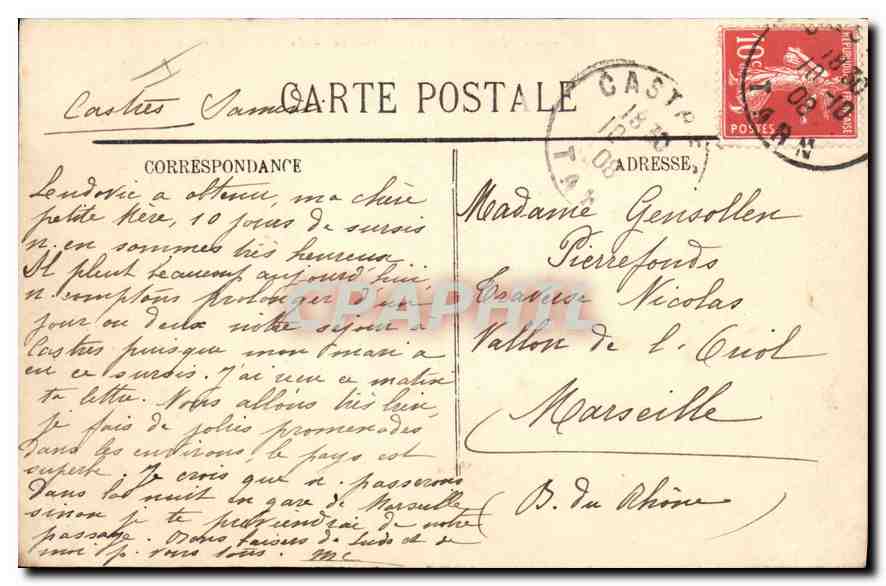 Castres Samedi
CARTE POSTALE
CORRESPONDANCE
ADRESSE
Ludovic a obtenu, ma chère
petite Mère, 10 jours de sursis
n. en sommes très heureux
Il pleut beaucoup aujourd'hui,
n. comptons prolonger d'un
jour ou deux notre séjour à
Castres puisque mon mari a
eu ce sursis. J'ai reçu ce matin
ta lettre. Nous allons très bien,
je fais de jolies promenades
dans les environs, le pays est
superbe. Je crois que n. passerons
dans la nuit en gare de Marseille
sinon je te préviendrai de notre
passage. Bons baisers de Ludo et de
moi p. vous tous. Mc
Madame Gensollen
Pierrefonds
Traverse Nicolas
Vallon de l'Oriol
Marseille
(B. du Rhône)
CASTRES
18 30
10
08
TARN
10c
POSTES
18 30
10-10
08
TARN
CPAPHIL